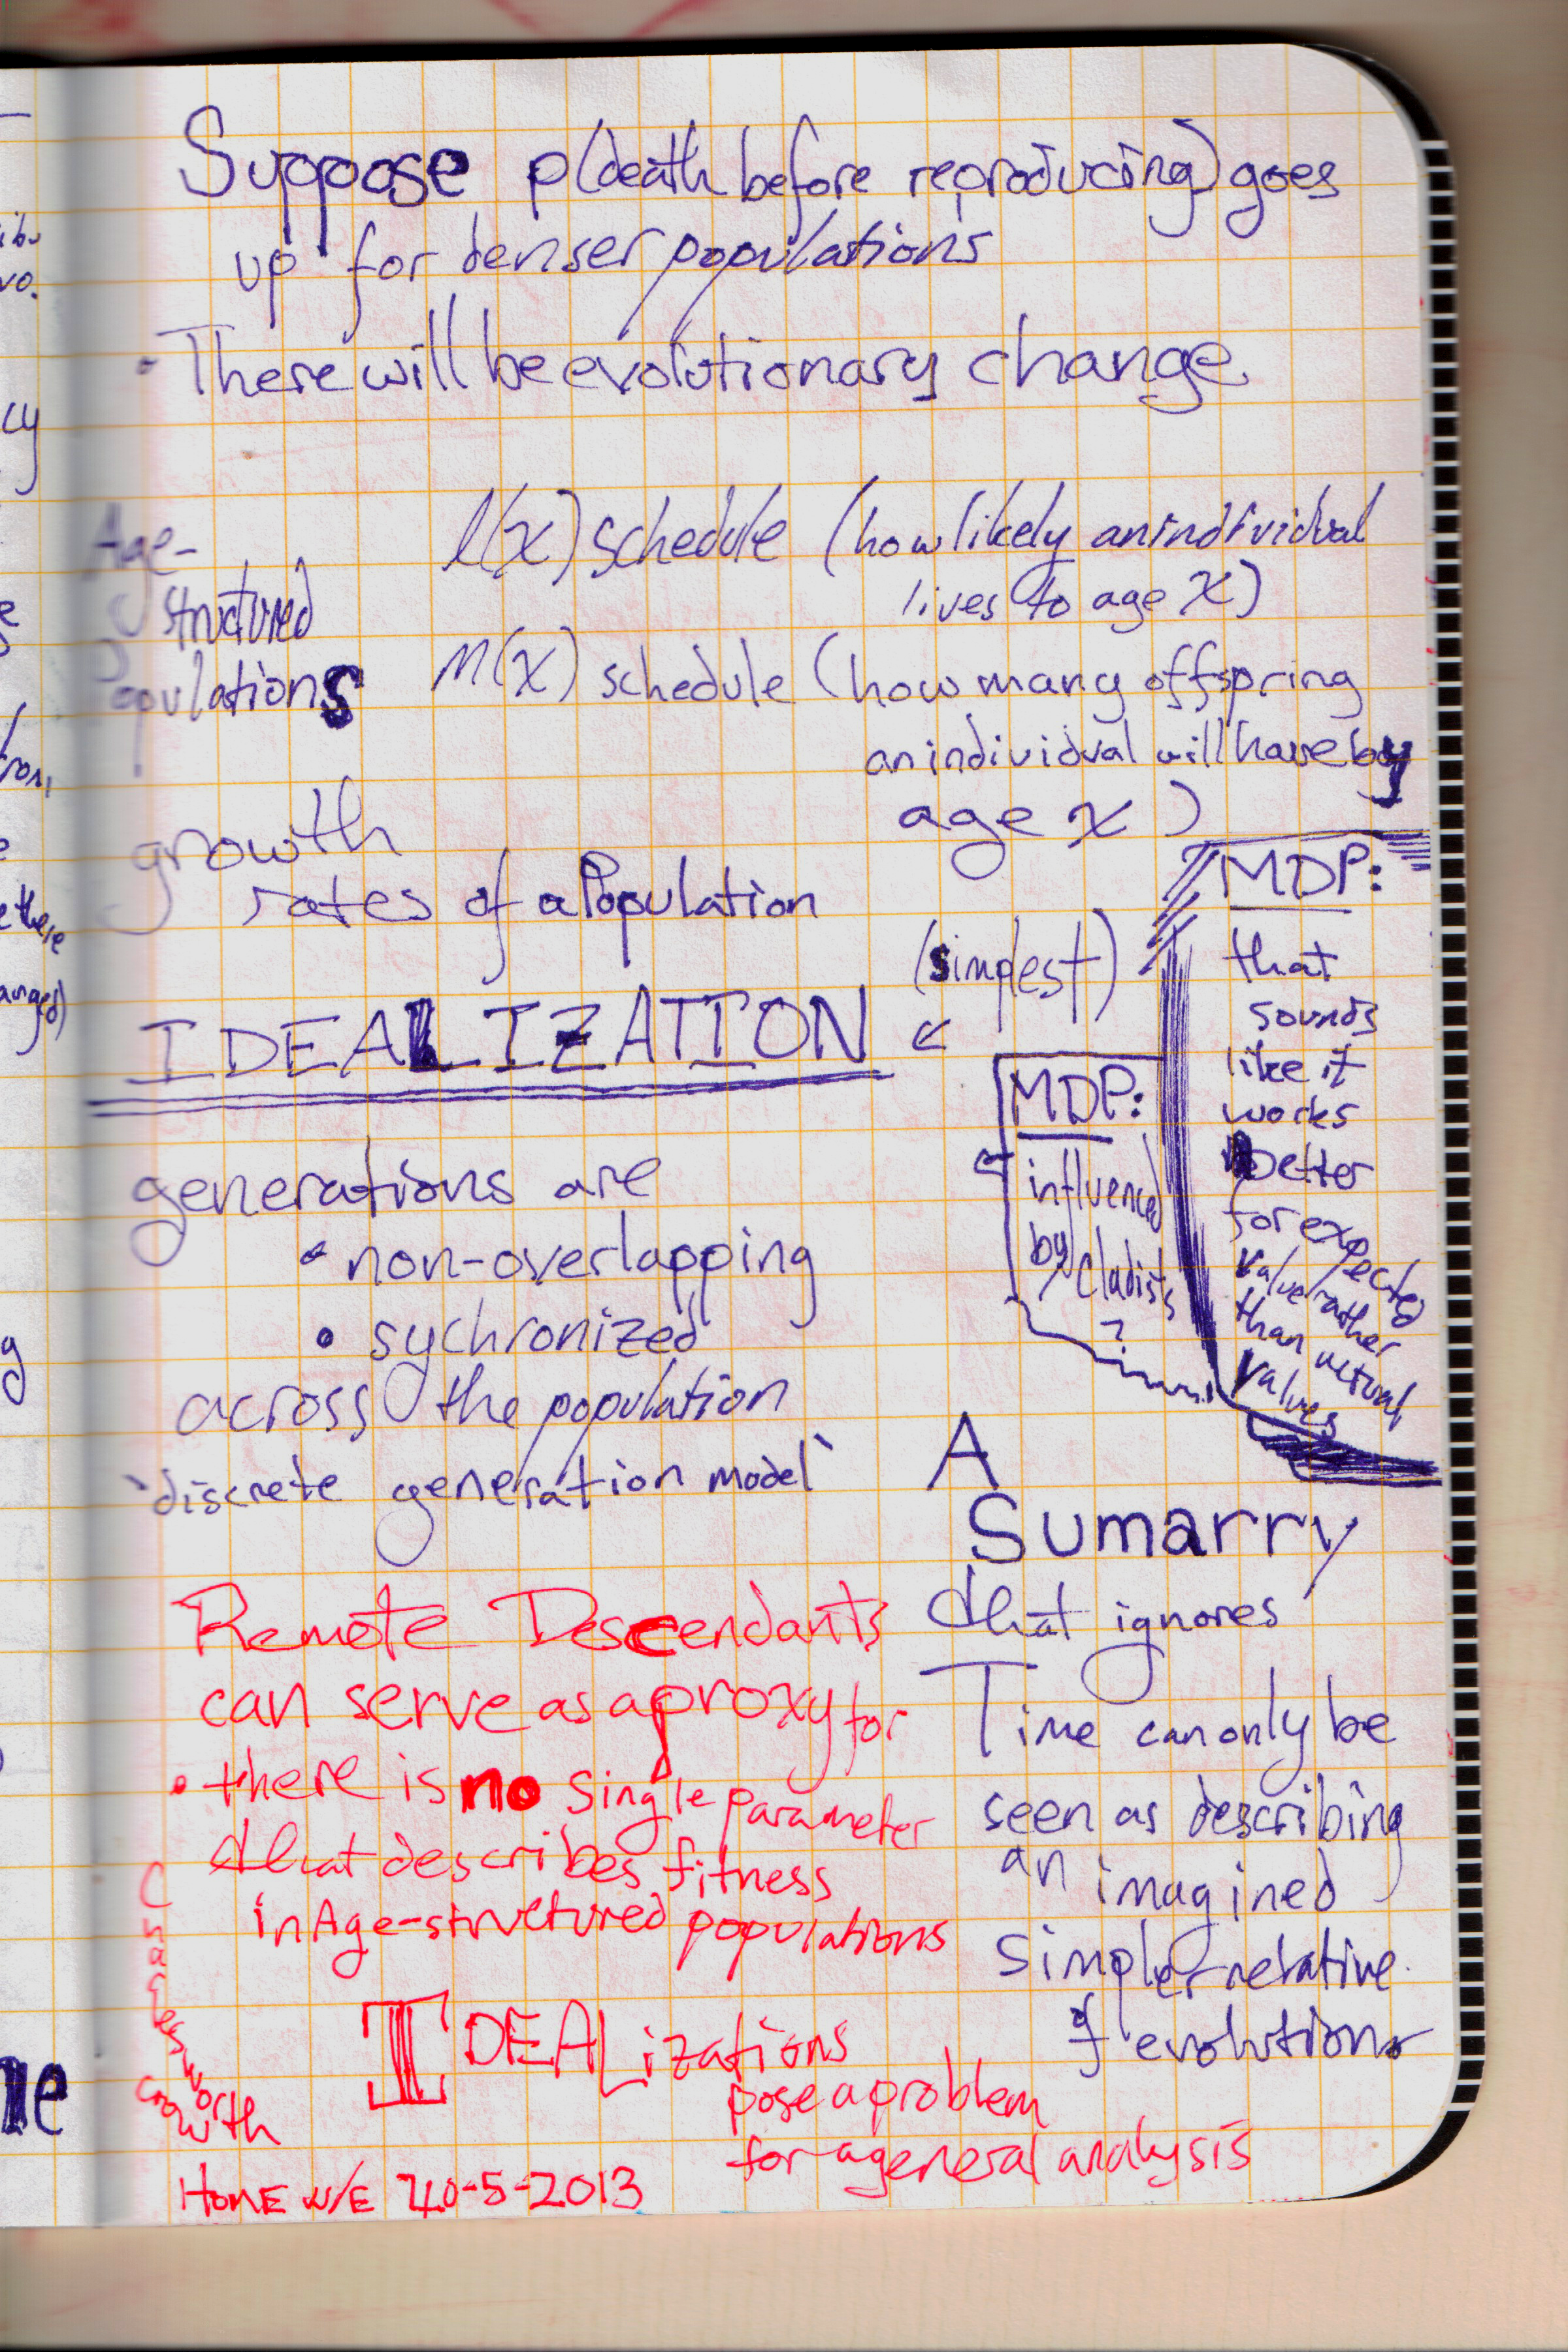 Suppose p(death before reproducing) goes
up for denser populations
• There will be evolutionary change
Age-
structured
Populations
l(x) schedule (how likely an individual
lives to age x)
m(x) schedule (how many offspring
an individual will have by
age x)
growth
rates of a Population
(simplest)
IDEALIZATION
MDP:
that
sounds
like it
works
better
for expected
value rather
than actual
values
MDP:
influenced
by Cladists
?
generations are
• non-overlapping
• sychronized
across the population
`discrete generation model`
A
Sumarry
that ignores
Time can only be
seen as describing
an imagined
simpler relative
of evolution
Remote Descendants
can serve as a proxy for
• there is no single parameter
that describes fitness
in Age-structured populations
IDEALizations
pose a problem
for a general analysis
growth
ibu
vo.
cy
e
g
e there
anges)
ne